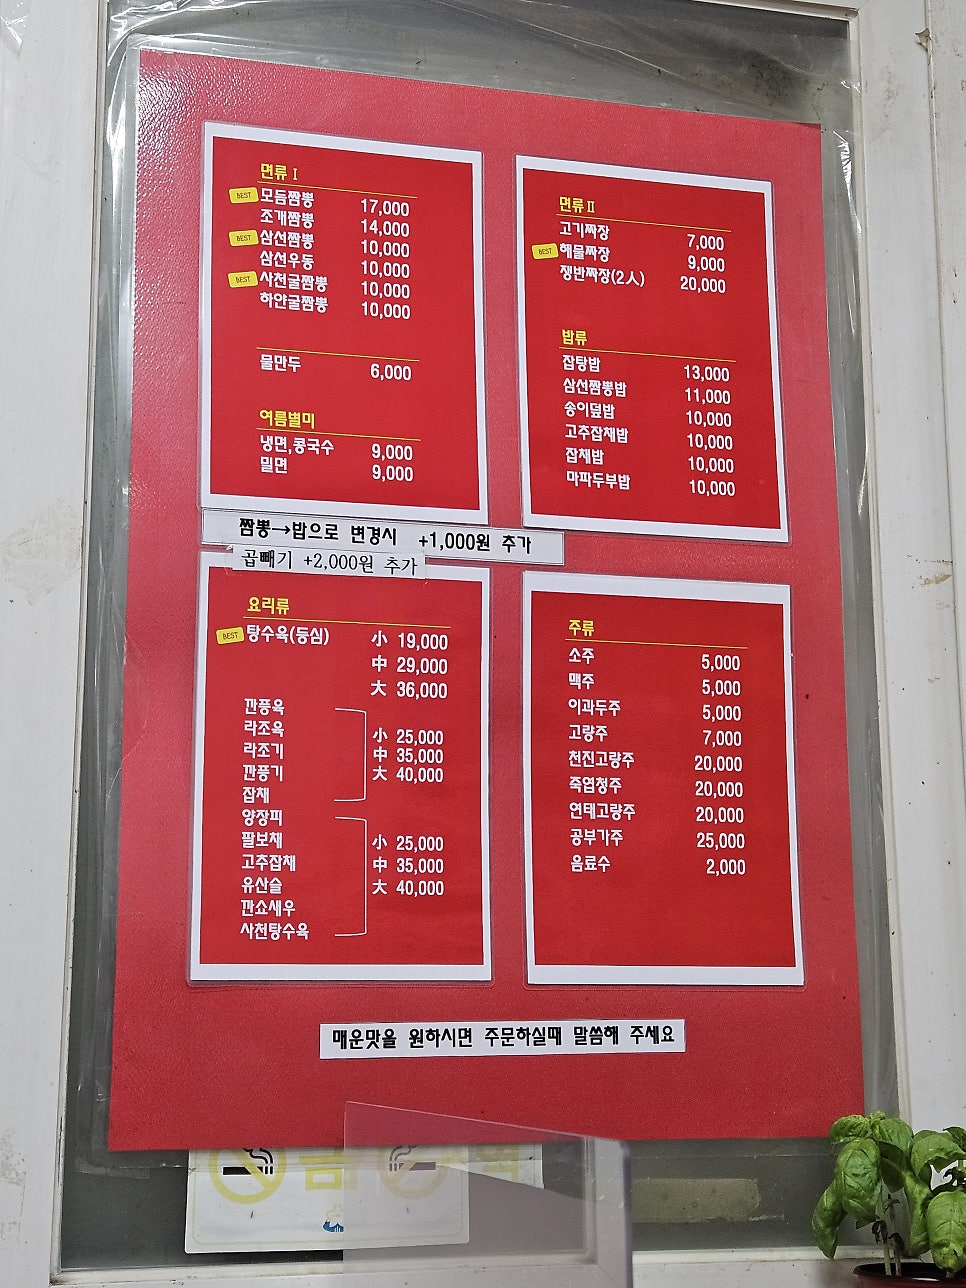 면류 I
BEST 모듬짬뽕 17,000
조개짬뽕 14,000
BEST 삼선짬뽕 10,000
삼선우동 10,000
BEST 사천굴짬뽕 10,000
하얀굴짬뽕 10,000
물만두 6,000
여름별미
냉면,콩국수 9,000
밀면 9,000
면류 II
고기짜장 7,000
BEST 해물짜장 9,000
쟁반짜장(2人) 20,000
밥류
잡탕밥 13,000
삼선짬뽕밥 11,000
송이덮밥 10,000
고추잡채밥 10,000
잡채밥 10,000
마파두부밥 10,000
짬뽕→밥으로 변경시 +1,000원 추가
곱빼기 +2,000원 추가
요리류
BEST 탕수육(등심) 小 19,000
中 29,000
大 36,000
깐풍육
라조육
라조기
깐풍기
잡채
小 25,000
中 35,000
大 40,000
양장피
팔보채
고추잡채
유산슬
깐쇼새우
사천탕수육
小 25,000
中 35,000
大 40,000
주류
소주 5,000
맥주 5,000
이과두주 5,000
고량주 7,000
천진고량주 20,000
죽엽청주 20,000
연태고량주 20,000
공부가주 25,000
음료수 2,000
매운맛을 원하시면 주문하실때 말씀해 주세요